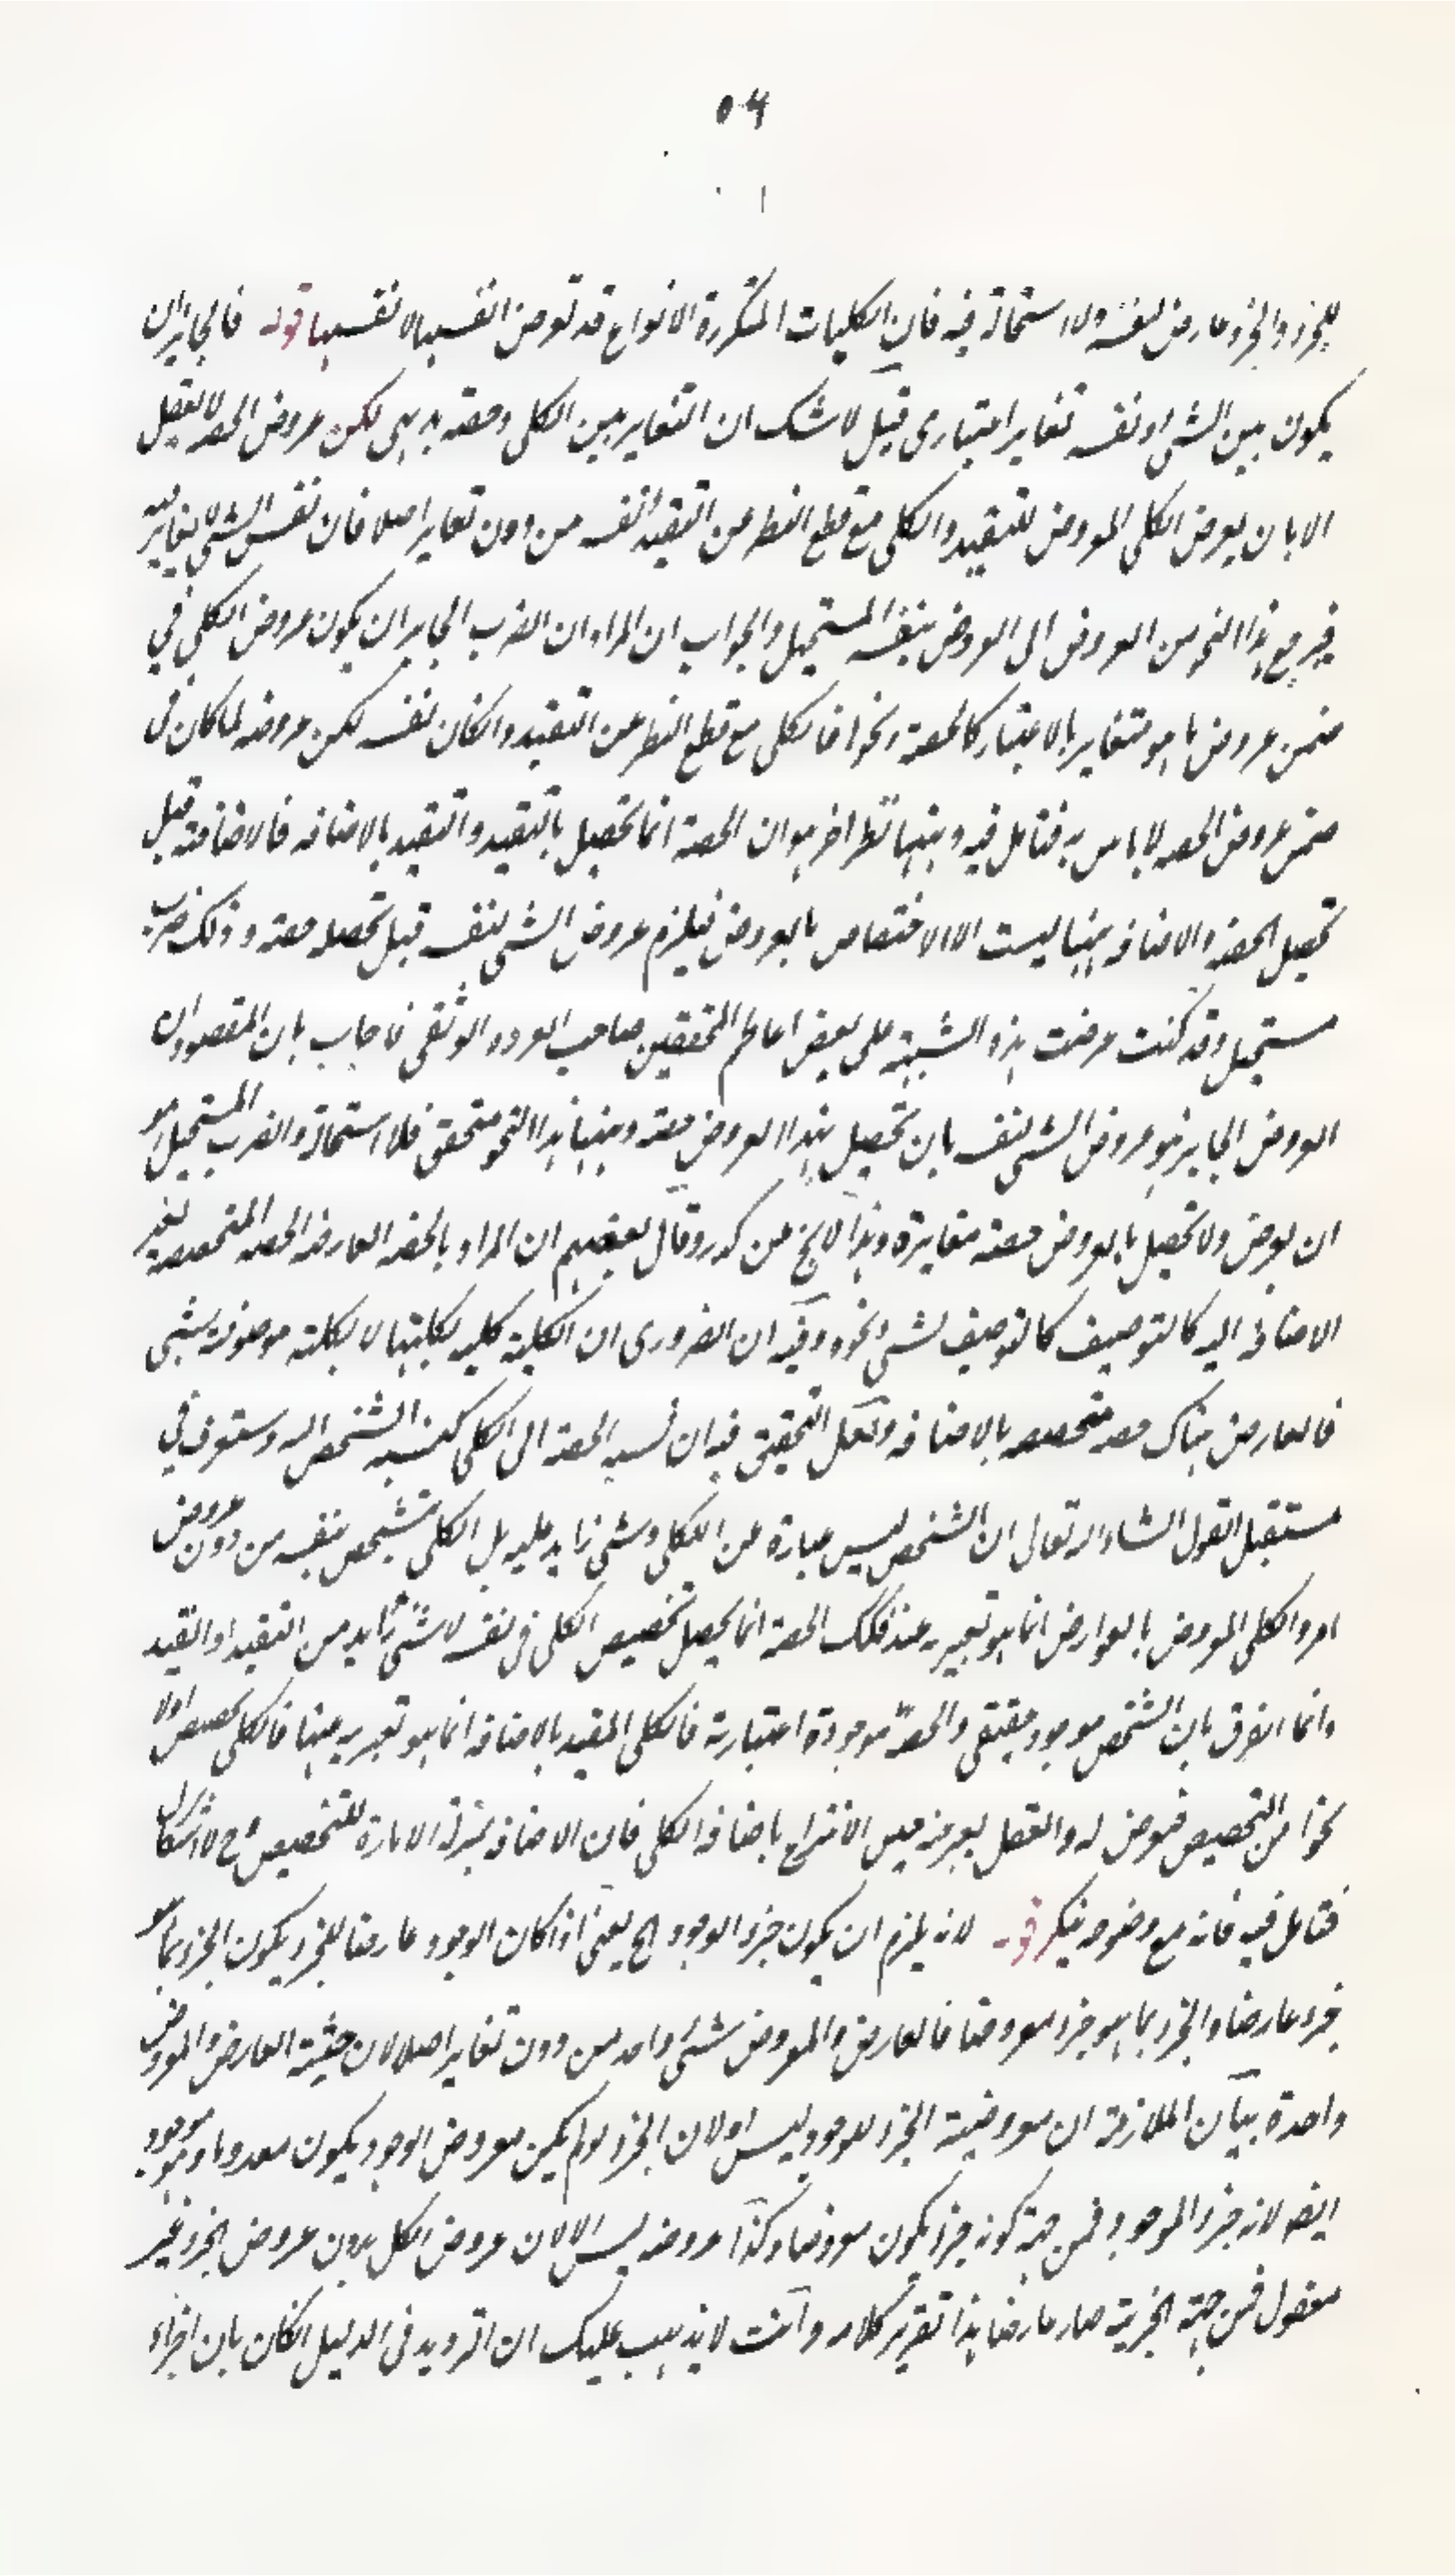 ٥٦
للجزء والجزء عارض لنفسه ولا استحالة فيه فان الكليات المتكررة الانواع قد تعرض انفسها لانفسها قوله فالجايز ان
يكون بين الشئ ونفسه تغاير اعتبارى قيل لا شك ان التغاير بين الكلى وحصته بديهى لكن عروض الحصه لا يعقل
الا بان يعرض الكلى المعروض للتقييد والكلى مع قطع النظر عن التقييد نفسه من دون تغاير اصلا فان نفس الشئ لا يغاير نفسه
فيرجع هذا النحو من العروض الى العروض بنفسه المستحيل والجواب ان المراد ان الضرب الجايز ان يكون عروض الكلى في
ضمن عروض ما هو متغاير بالاعتبار كالحصة ونحوا فالكلى مع قطع النظر عن التقييد وان كان نفسه لكن عروضه لما كان فى
ضمن عروض الحصه لا باس به فتامل فيه وبينها نظر اخر هو ان الحصة انما تحصل بالتقييد والتقييد بالاضافه فالاضافة قبل
تحصل الحصة والاضافه ههنا ليست الا الاختصاص بالعروض فيلزم عروض الشئ لنفسه قبل تحصله حصته وذلك ضرب
مستحيل وقد كنت عرضت هذه الشبهة على بعض اعاظم المحققين صاحب العروة الوثقى فاجاب بان المقصود ان
العروض الجايز هو عروض الشئ لنفسه بان تحصل بهذا العروض حصته وههنا هذا النحو متحقق فلا استحالة والضرب المستحيل هو
ان يعرض ولا تحصل بالعروض حصته مغايرة وهذا لا يخ من كدر وقال بعضهم ان المراد بالحصه العارضه الحصه المتحصصه بغير
الاضافة اليه كالتوصيف كالتوصيف لشئ ونحوه وفيه ان الضرورى ان الكلية كليه بكليتها لا بكلية موصوفة بشئ
فالعارض هناك حصه متحصصه بالاضافه ولعل التحقيق فيه ان نسبة الحصة الى الكلى كنسبة الشخص اليه وستعرف في
مستقبل القول انشاء الله تعالى ان الشخص ليس عبارة عن الكلى وشئ زايد عليه بل الكلى متشخص بنفسه من دون عروض
امر والكلى المعروض بالعوارض انما هو تعبير به عنه فكذلك الحصة انما يحصل تخصيص الكلى فى نفسه لا شئ زايد من التقييد او القيد
وانما الفرق بان الشخص موجود حقيقى والحصة موجودة اعتبارية فالكلى المقيد بالاضافه انما هو تعبير به عنها فالكلى تحصص اولا
نحوا من التحصيص فعرض له والعقل يعبر عنه حين الانتزاع باضافة الكلى فان الاضافة بمنزلة الامارة للتخصيص فح لا اشكال
فتامل فيه فانه مع وضوحه ينكر قوله لانه يلزم ان يكون جزء الوجود الخ يعنى اذا كان الوجود عارضا للجزء يكون الجزء بما هو
جزء عارضا والجزء بما هو جزء معروضا فالعارض والمعروض شئ واحد من دون تغاير اصلا لان حيثية العارض والمعروض
واحدة بيان الملازمة ان معروضية الجزء للوجود ليس اولا لان الجزء لو لم يكن معروض الوجود يكون معدوما وهو موجود
ايضا لانه جزء الموجود فمن جهة كونه جزء يكون معروضا وكذا عروضه ليس الا لان عروض الكل بدون عروض الجزء غير
معقول فمن جهة الجزئية صار عارضا هذا تقرير كلامه وانت لا يذهب عليك ان الترديد فى الدليل ان كان بان اجزاء